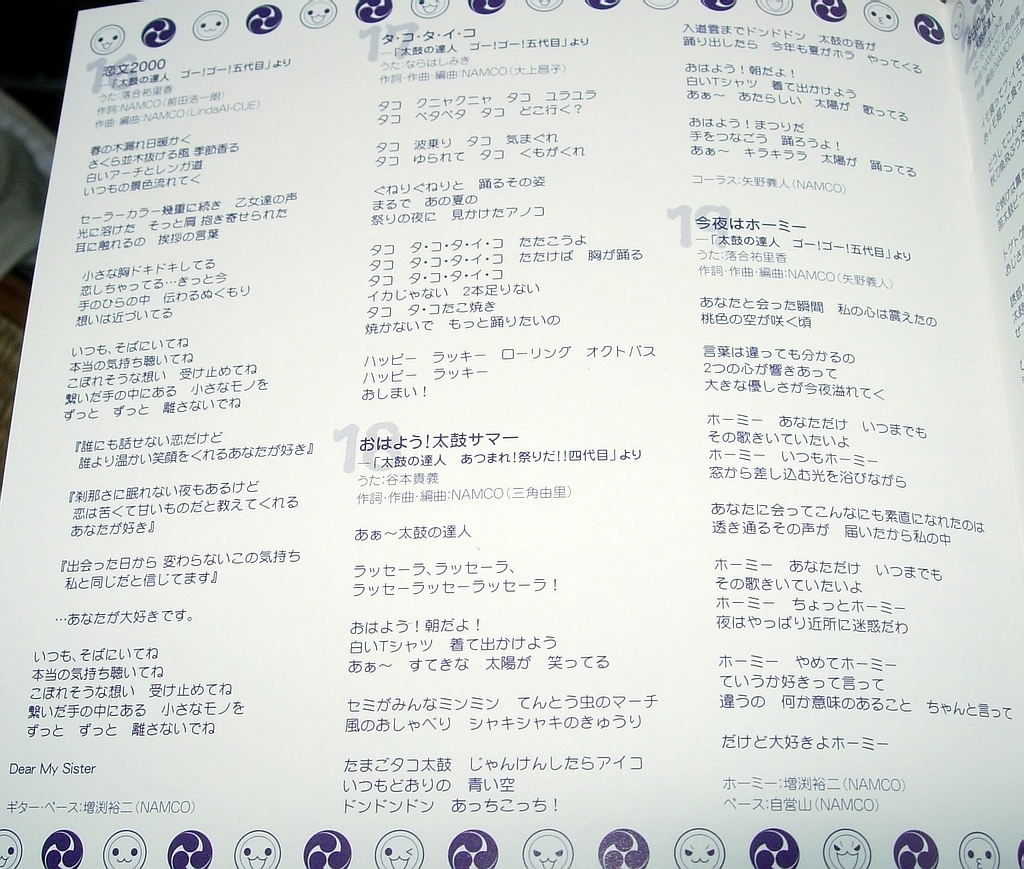 恋文2000
―「太鼓の達人　ゴー!ゴー!五代目」より
うた:落合祐里香
作詞:NAMCO(前田浩一朗)
作曲・編曲:NAMCO(LindaAI-CUE)
春の木漏れ日暖かく
さくら並木抜ける風 季節香る
白いアーチとレンガ道
いつもの景色流れてく
セーラーカラー幾重に続き　乙女達の声
光に溶けた　そっと肩 抱き寄せられた
耳に触れるの　挨拶の言葉
小さな胸ドキドキしてる
恋しちゃってる…きっと今
手のひらの中　伝わるぬくもり
想いは近づいてる
いつも、そばにいてね
本当の気持ち聴いてね
こぼれそうな想い　受け止めてね
繋いだ手の中にある　小さなモノを
ずっと　ずっと　離さないでね
『誰にも話せない恋だけど
誰より温かい笑顔をくれるあなたが好き』
『刹那さに眠れない夜もあるけど
恋は苦くて甘いものだと教えてくれる
あなたが好き』
『出会った日から 変わらないこの気持ち
私と同じだと信じてます』
…あなたが大好きです。
いつも、そばにいてね
本当の気持ち聴いてね
こぼれそうな想い　受け止めてね
繋いだ手の中にある　小さなモノを
ずっと　ずっと　離さないでね
Dear My Sister
ギター・ベース:増渕裕二(NAMCO)
17
タ・コ・タ・イ・コ
―「太鼓の達人　ゴー!ゴー!五代目」より
うた:ならはしみき
作詞・作曲・編曲:NAMCO(大上昌子)
タコ　クニャクニャ　タコ　ユラユラ
タコ　ペタペタ　タコ　どこ行く?
タコ　波乗り　タコ　気まぐれ
タコ　ゆられて　タコ　くもがくれ
ぐねりぐねりと　踊るその姿
まるで　あの夏の
祭りの夜に　見かけたアノコ
タコ　タ・コ・タ・イ・コ　たたこうよ
タコ　タ・コ・タ・イ・コ　たたけば　胸が踊る
タコ　タ・コ・タ・イ・コ
イカじゃない　2本足りない
タコ　タ・コたこ焼き
焼かないで　もっと踊りたいの
ハッピー　ラッキー　ローリング　オクトパス
ハッピー　ラッキー
おしまい!
18
おはよう!太鼓サマー
―「太鼓の達人　あつまれ!祭りだ!!四代目」より
うた:谷本貴義
作詞・作曲・編曲:NAMCO(三角由里)
あぁ～太鼓の達人
ラッセーラ、ラッセーラ、
ラッセーラッセーラッセーラ!
おはよう!朝だよ!
白いTシャツ　着て出かけよう
あぁ～　すてきな　太陽が　笑ってる
セミがみんなミンミン　てんとう虫のマーチ
風のおしゃべり　シャキシャキのきゅうり
たまごタコ太鼓　じゃんけんしたらアイコ
いつもどおりの　青い空
ドンドンドン　あっちこっち!
入道雲までドンドドン　太鼓の音が
踊り出したら　今年も夏が　やってくる
おはよう!朝だよ!
白いTシャツ　着て出かけよう
あぁ～　あたらしい　太陽が　歌ってる
おはよう!まつりだ
手をつなごう　踊ろうよ!
あぁ～　キラキララ　太陽が　踊ってる
コーラス:矢野義人(NAMCO)
19
今夜はホーミー
―「太鼓の達人　ゴー!ゴー!五代目」より
うた:落合祐里香
作詞・作曲・編曲:NAMCO(矢野義人)
あなたと会った瞬間　私の心は震えたの
桃色の空が咲く頃
言葉は違っても分かるの
2つの心が響きあって
大きな優しさが今夜溢れてく
ホーミー　あなただけ　いつまでも
その歌きいていたいよ
ホーミー　いつもホーミー
窓から差し込む光を浴びながら
あなたに会ってこんなにも素直になれたのは
透き通るその声が　届いたから私の中
ホーミー　あなただけ　いつまでも
その歌きいていたいよ
ホーミー　ちょっとホーミー
夜はやっぱり近所に迷惑だわ
ホーミー　やめてホーミー
ていうか好きって言って
違うの　何か意味のあること　ちゃんと言って
だけど大好きよホーミー
ホーミー:増渕裕二(NAMCO)
ベース:白營山(NAMCO)